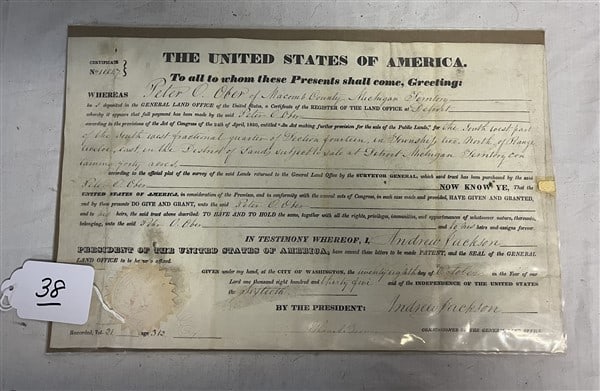 THE UNITED STATES OF AMERICA.
CERTIFICATE
No
To all to whom these Presents shall come, Greeting:
WHEREAS Peter O. Ober of Macomb County, Michigan Territory
ha deposited in the GENERAL LAND OFFICE of the United States, a Certificate of the REGISTER OF THE LAND OFFICE at Detroit
whereby it appears that full payment has been made by the said Peter O. Ober
according to the provisions of the Act of Congress of the 24th of April, 1820, entitled "An Act making further provision for the sale of the Public Lands," for the South west part
of the South east fractional quarter of Section fourteen, in Township two, North, of Range
twelve, east, in the District of Lands subject to sale at Detroit Michigan Territory con
taining forty acres,
according to the official plat of the survey of the said Lands returned to the General Land Office by the SURVEYOR GENERAL, which said tract has been purchased by the said
Peter O. Ober NOW KNOW YE, That the
UNITED STATES OF AMERICA, in consideration of the Premises, and in conformity with the several acts of Congress, in such case made and provided, HAVE GIVEN AND GRANTED,
and by these presents DO GIVE AND GRANT, unto the said Peter O. Ober
and to his heirs, the said tract above described: TO HAVE AND TO HOLD the same, together with all the rights, privileges, immunities, and appurtenances of whatsoever nature, thereunto
belonging, unto the said Peter O. Ober and to his heirs and assigns forever.
IN TESTIMONY WHEREOF, I, Andrew Jackson
PRESIDENT OF THE UNITED STATES OF AMERICA, have caused these Letters to be made PATENT, and the SEAL of the GENERAL
LAND OFFICE to be hereunto affixed.
GIVEN under my hand, at the CITY OF WASHINGTON, the twenty eighth day of October in the Year of our
Lord one thousand eight hundred and thirty five and of the INDEPENDENCE OF THE UNITED STATES
the sixtieth
BY THE PRESIDENT: Andrew Jackson
COMMISSIONER OF THE GENERAL LAND OFFICE.
Recorded, Vol. 21 Page 312
38